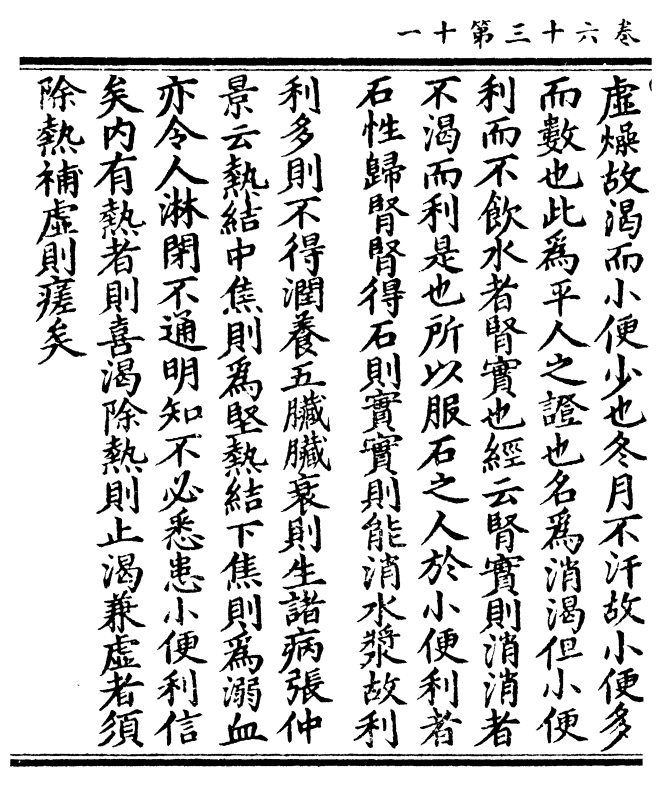 卷六十三第十一
虛燥故渴而小便少也冬月不汗故小便多
而數也此爲平人之證也名爲消渴但小便
利而不飲水者腎實也經云腎實則消消者
不渴而利是也所以服石之人於小便利者
石性歸腎腎得石則實實則能消水漿故利
利多則不得潤養五臟臟衰則生諸病張仲
景云熱結中焦則爲堅熱結下焦則爲溺血
亦令人淋閉不通明知不必悉患小便利信
矣内有熱者則喜渴除熱則止渴兼虛者須
除熱補虛則瘥矣